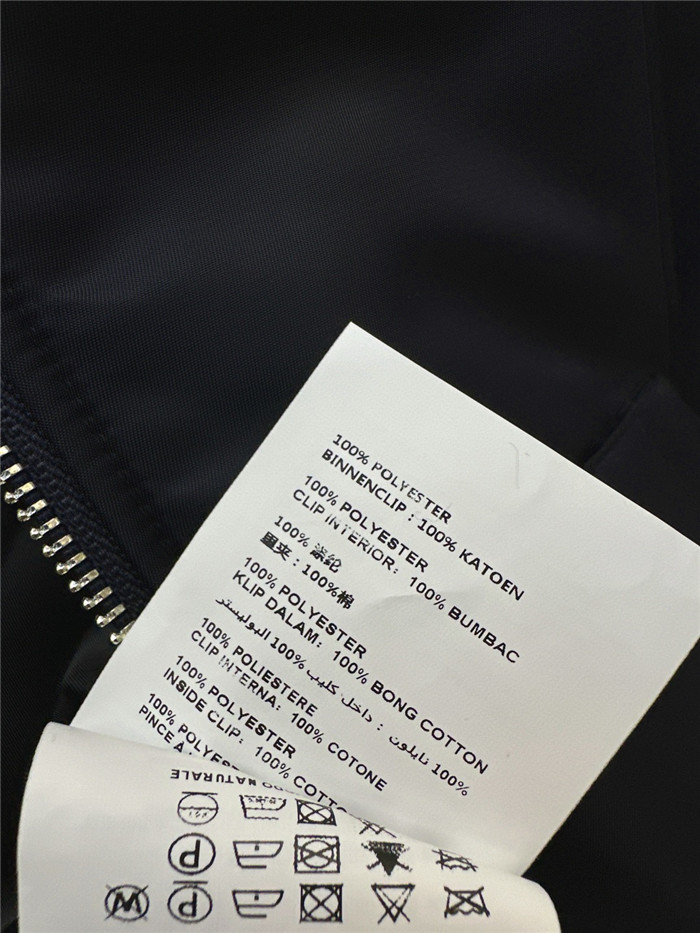 100% POLYESTER
BINNENCLIP : 100% KATOEN
100% POLYESTER
CLIP INTERIOR: 100% BUMBAC
100% 涤纶
里夹 : 100%棉
100% POLYESTER
KLIP DALAM: 100% BONG COTTON
100% نايلون : داخل كليب 100% البوليستر
100% POLIESTERE
CLIP INTERNA: 100% COTONE
100% POLYESTER
INSIDE CLIP: 100%
100%
PINCE À
NATURALE
P
P
W